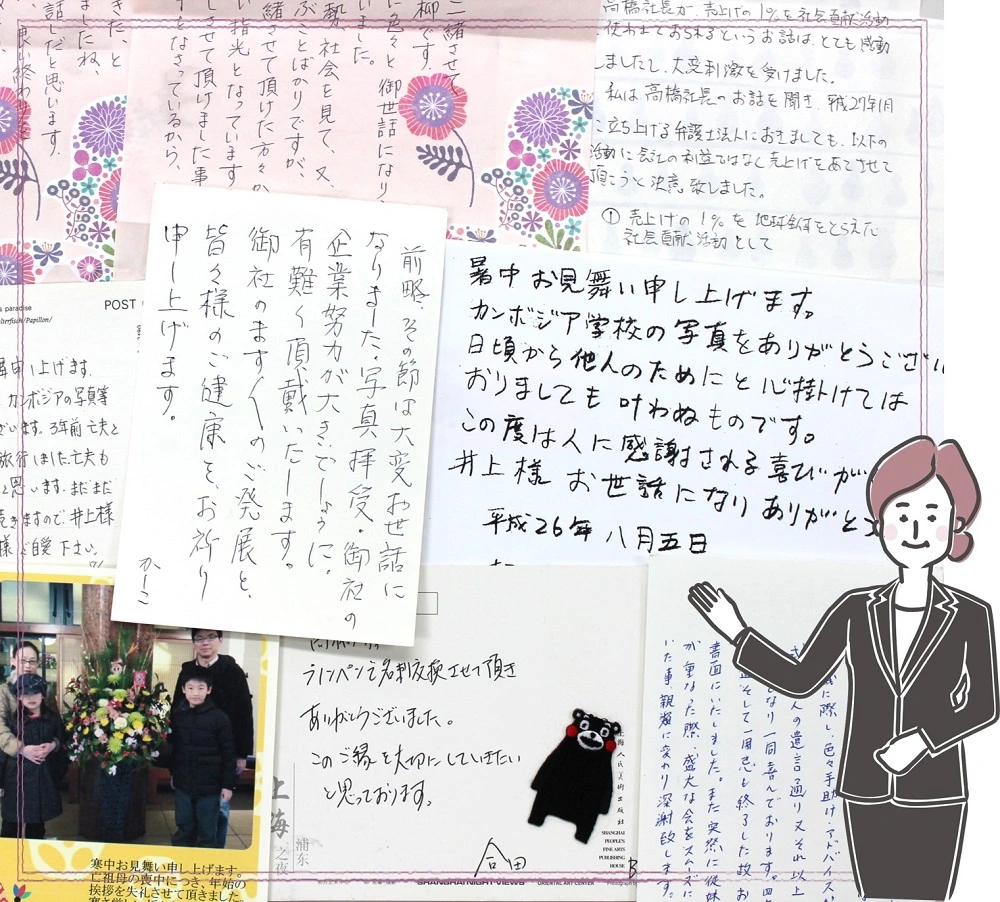 二緒させて
柳です。
に色々と御世話になり
いました。
勢、社会を見て、又、
ぶことばかりですが、
緒させて頂けた方々か
い指光となっています
させて頂けました事
となさっているから、
きた、と
ましたね、
話しだと思います。
高橋社長が、売上げの1%を社会貢献活動
使わせておられるというお話は、とても感動
しましたし、大変刺激を受けました。
私は高橋社長のお話を聞き、平成27年1月
に立ち上げる弁護士法人におきましても、以下の
活動に会社の利益ではなく売上げをあてさせて
頂こうと決意致しました。
① 売上げの1%を地球全体をとらえた
社会貢献活動として
前略、その節は大変お世話に
なりました。写真拝受・御社の
企業努力が大きいでしょうに。
有難く頂戴いたします。
御社のます〱のご発展と、
皆々様のご健康を、お祈り
申し上げます。
かしこ
暑中お見舞い申し上げます。
カンボジア学校の写真をありがとうござい
日頃から他人のためにと心掛けては
おりましても叶わぬものです。
この度は人に感謝される喜びが
井上様 お世話になり ありがと
平成26年 八月五日
s paradise
POST
lterfisch/Papillon/
申し上げます。
カンボジアの写真等
ざいます。3年前亡夫と
旅行しました。亡夫も
と思います。まだまだ
続きますので、井上様
様ご自愛下さい。
ラインペンで名刺交換させて頂き
ありがとうございました。
このご縁を大切にしていきたい
と思っております。
合田
上海
之夜
浦东
海人民美術出版社
SHANGHAI
PEOPLE'S
FINE ARTS
PUBLISHING
HOUSE
B
SHANGHAI NIGHT VIEWS
ORIENTAL ART CENTER
に際し、色々手助け・アドバイスか
人の遺言通り又それ以上
となり一同喜んでおります。四
そして一周忌も終了した故お
書面にいたしました。また突然に従妹
が重なった際、盛大な会をスムーズに
いた事親族に変わり深謝致します。
寒中お見舞い申し上げます。
亡祖母の喪中につき、年始の
挨拶を失礼させて頂きました。